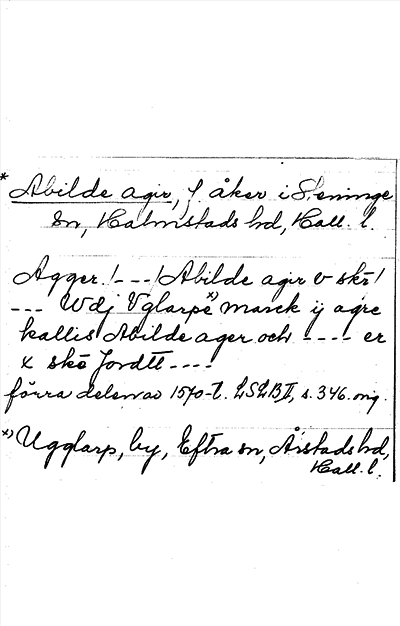 * Abilde agir, f. åker i Steninge
sn, Halmstads hd, Hall. l.
Agger. /---/ Abilde agir v skr /
--- Wdj Vglarpe x) marck ij agre
kallis Abilde ager och ---- er
x skē Jordtt ----
förra delen av 1570-t. LSLB II, s. 346. orig.
x) Ugglarp, by, Eftra sn, Årstads hd,
Hall. l.